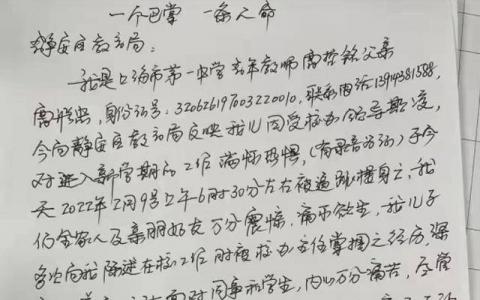 一个巴掌 一条人命
静安区教育局：
我是上海市第一中学青年教师高哲铭父亲
高 身份证号：320626197003220010，联系电话13914381588，
今向静安区教育局反映我儿因受校办领导欺凌，
对进入新学期的工作满怀恐惧，（有录音为证）于今
天2022年2月9号上午6时30分左右被逼跳楼身亡，我
们全家人及亲朋好友万分震惊，痛不欲生，我儿子
多次向我陈述在校工作时被校办主任掌掴之经历，深
面对同事和学生，内心万分痛苦，尽管